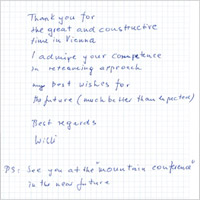 Thank you for
the great and constructive
time in Vienna
I admire your competence
in reteaming approach
my best wishes for
the future (much better than expected)
Best regards
Willi
PS: See you at the "mountain conference"
in the near future